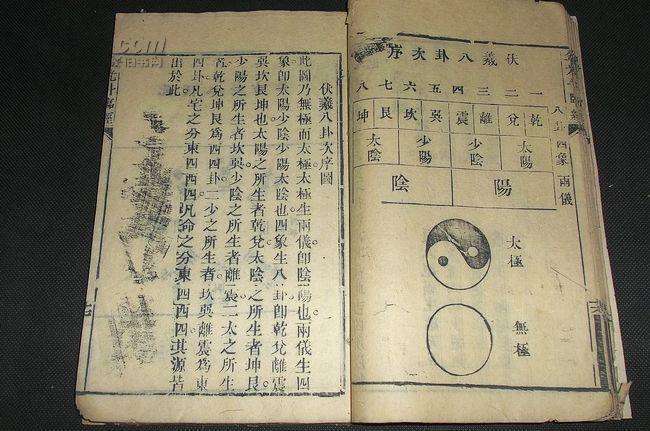 伏羲八卦次序
一乾 二兌 三離 四震 五巽 六坎 七艮 八坤
太陽 少陰 少陽 太陰
陽 陰
八卦
四象
兩儀
太極
無極
伏羲八卦次序圖
此圖乃無極而太極太極生兩儀卽陰陽也兩儀生四
象卽太陽少陰少陽太陰也四象生八卦卽乾兌離震
巽坎艮坤也太陽之所生者乾兌太陰之所生者坤艮
少陽之所生者坎巽少陰之所生者離震二太之所生
者乾兌坤艮爲西四卦二少之所生者坎巽離震爲東
四卦凡宅之分東四西四凡命之分東四西四其源皆
出於此